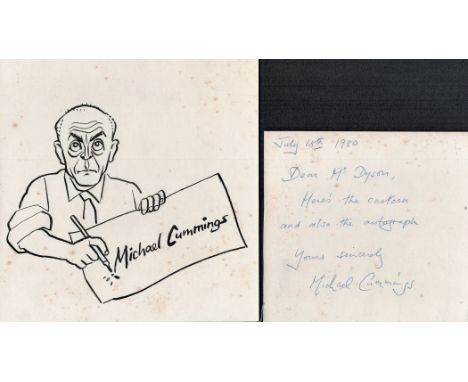 Michael Cummings
July 18th 1980
Dear Mr Dyson,
Here's the cartoon
and also the autograph
Yours sincerely
Michael Cummings